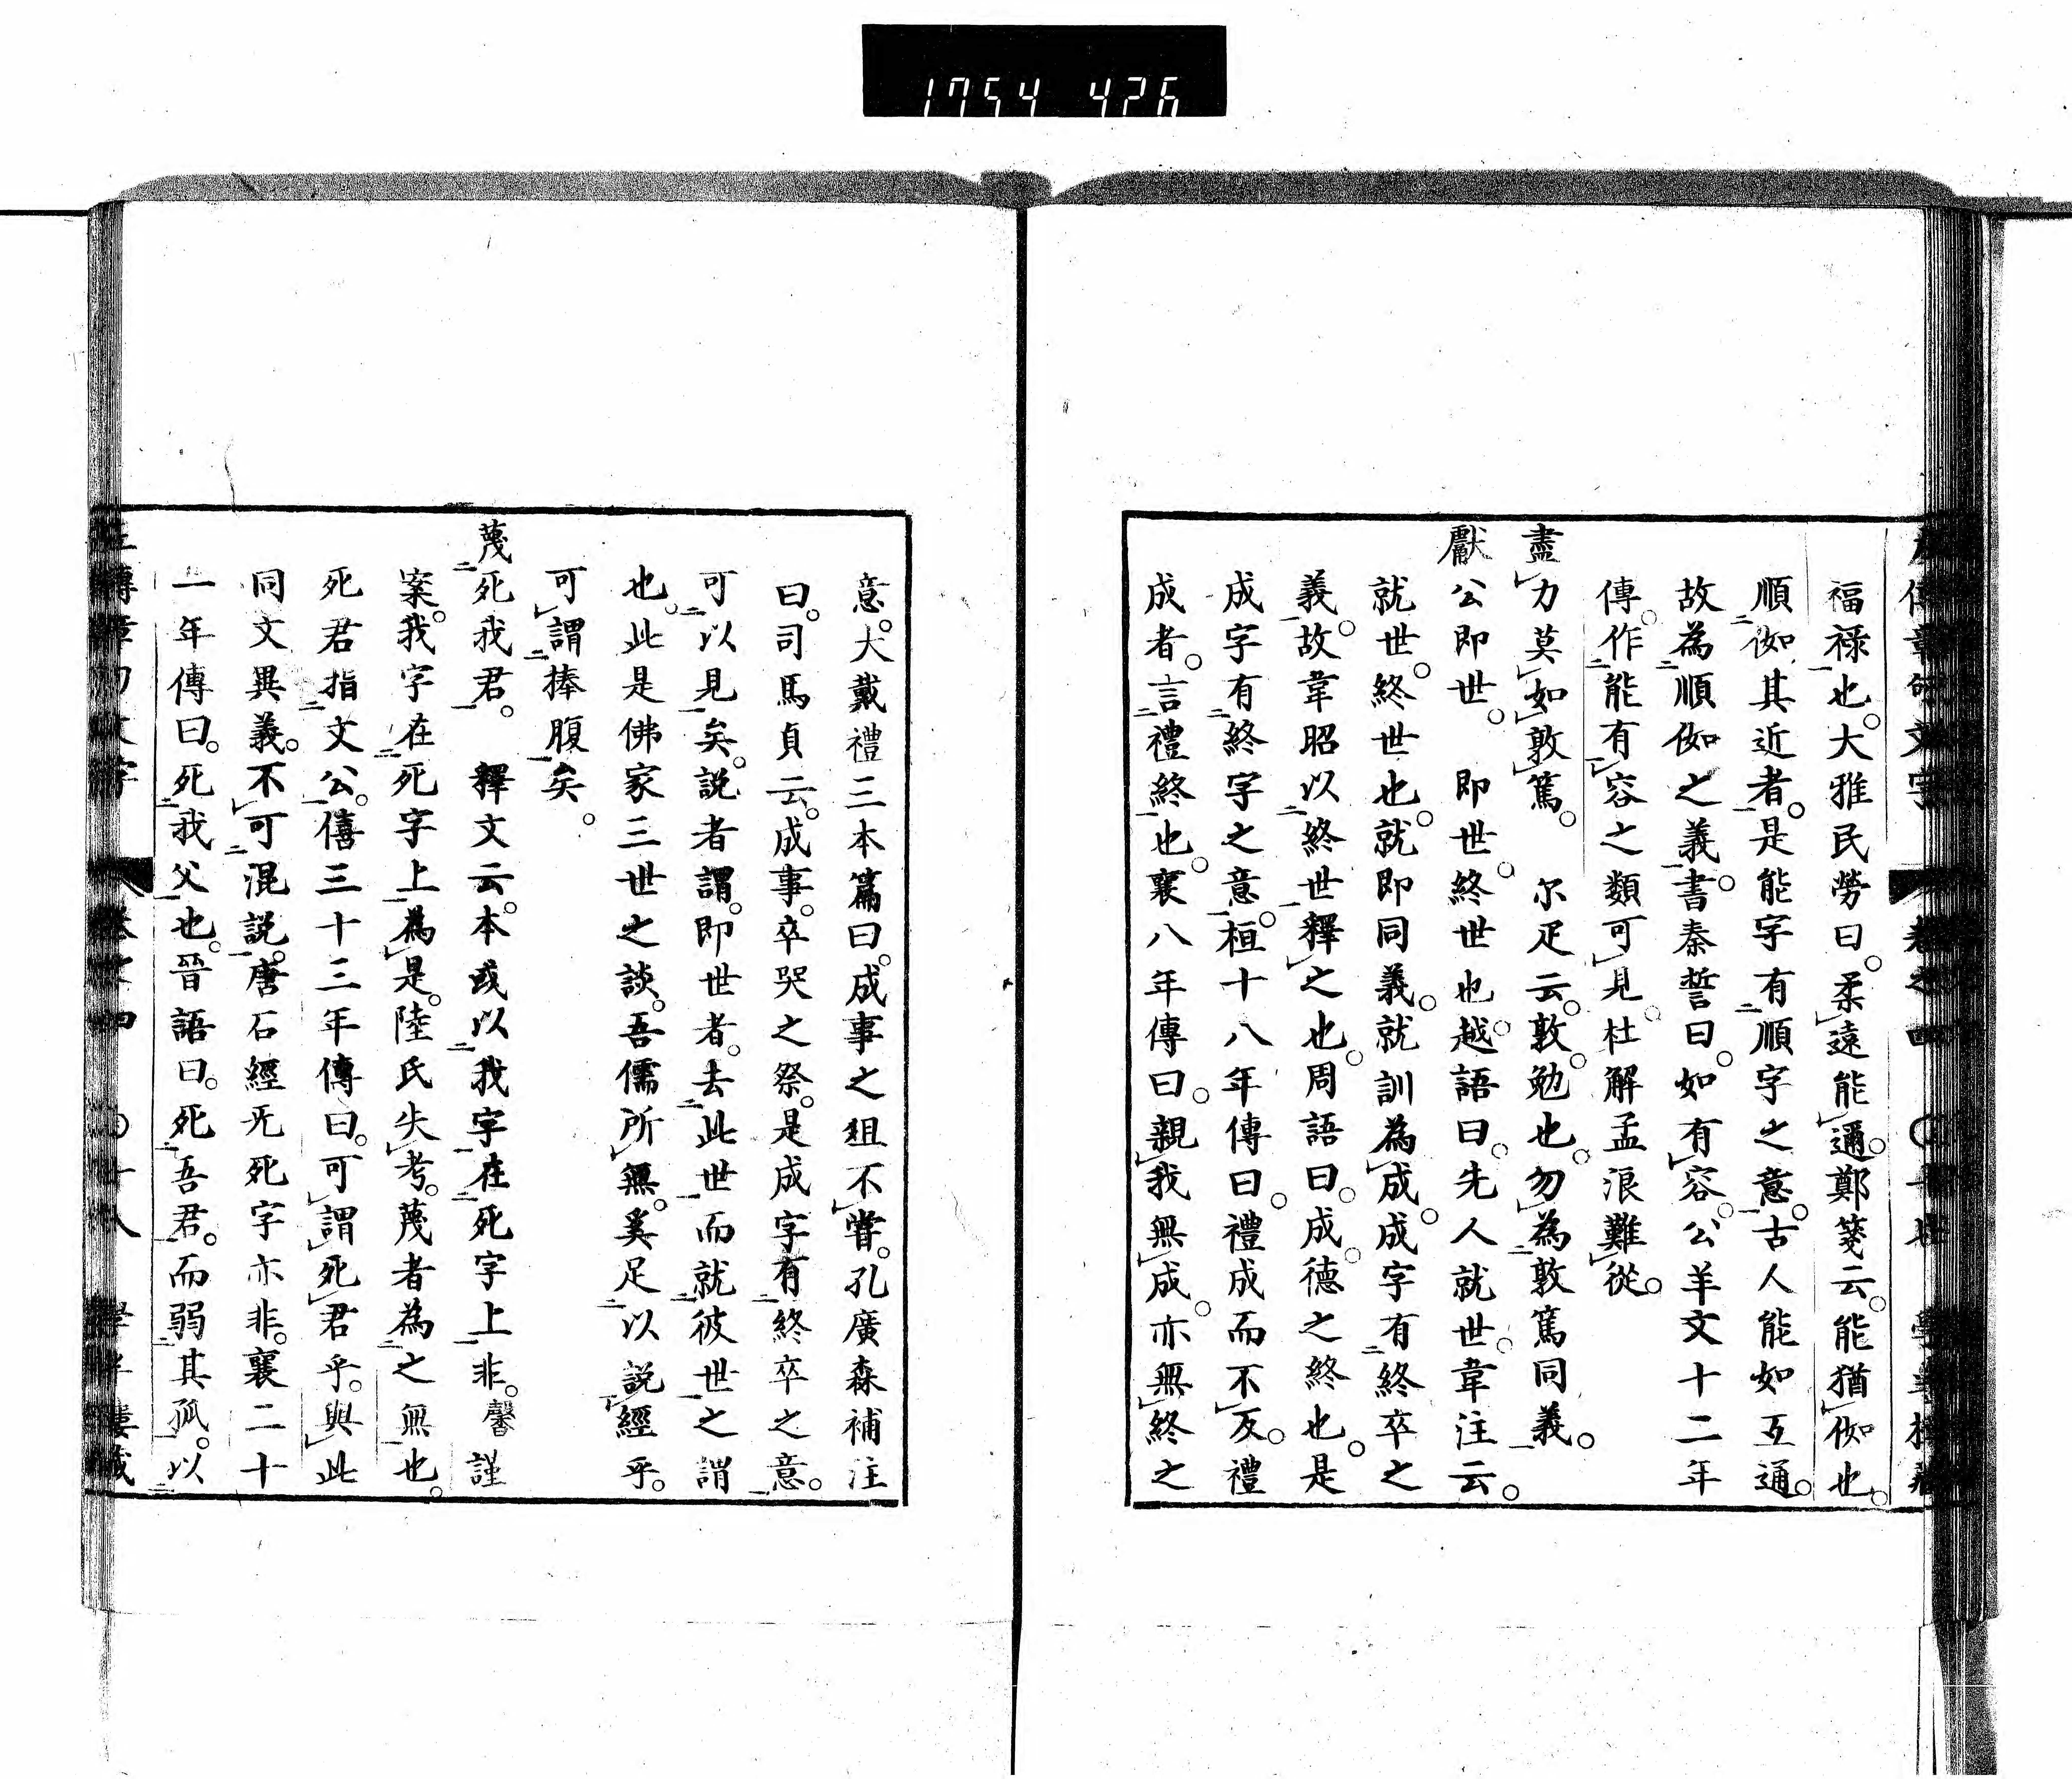 1754 426
福祿也。大雅民勞曰。柔遠能邇。鄭箋云。能猶㑚也。
順㑚其近者。是能字有順字之意。古人能如互通。
故為順㑚之義。書秦誓曰。如有容。公羊文十二年
傳。作能有容之類可見。杜解孟浪難從。
盡力莫如敦篤。　尔疋云。敦勉也。勿為敦篤同義。
獻公即世。　即世。終世也。越語曰。先人就世。韋注云。
就世。終世也。就即同義。就訓為成。成字有終卒之
義。故韋昭以終世釋之也。周語曰。成德之終也。是
成字有終字之意。桓十八年傳曰。禮成而不反。禮
成者。言禮終也。襄八年傳曰。親我無成。亦無終之
意。大戴禮三本篇曰。成事之俎不嘗。孔廣森補注
曰。司馬貞云。成事。卒哭之祭。是成字有終卒之意。
可以見矣。説者謂。即世者。去此世而就彼世之謂
也。此是佛家三世之談。吾儒所無。奚足以説經乎。
可謂捧腹矣。
蔑死我君。　釋文云。本或以我字在死字上非。馨謹
案。我字在死字上為是。陸氏失考。蔑者為之無也。
死君指文公。僖三十三年傳曰。可謂死君乎。與此
同文異義。不可混説。唐石經旡死字亦非。襄二十
一年傳曰。死我父也。晉語曰。死吾君。而弱其孤。以